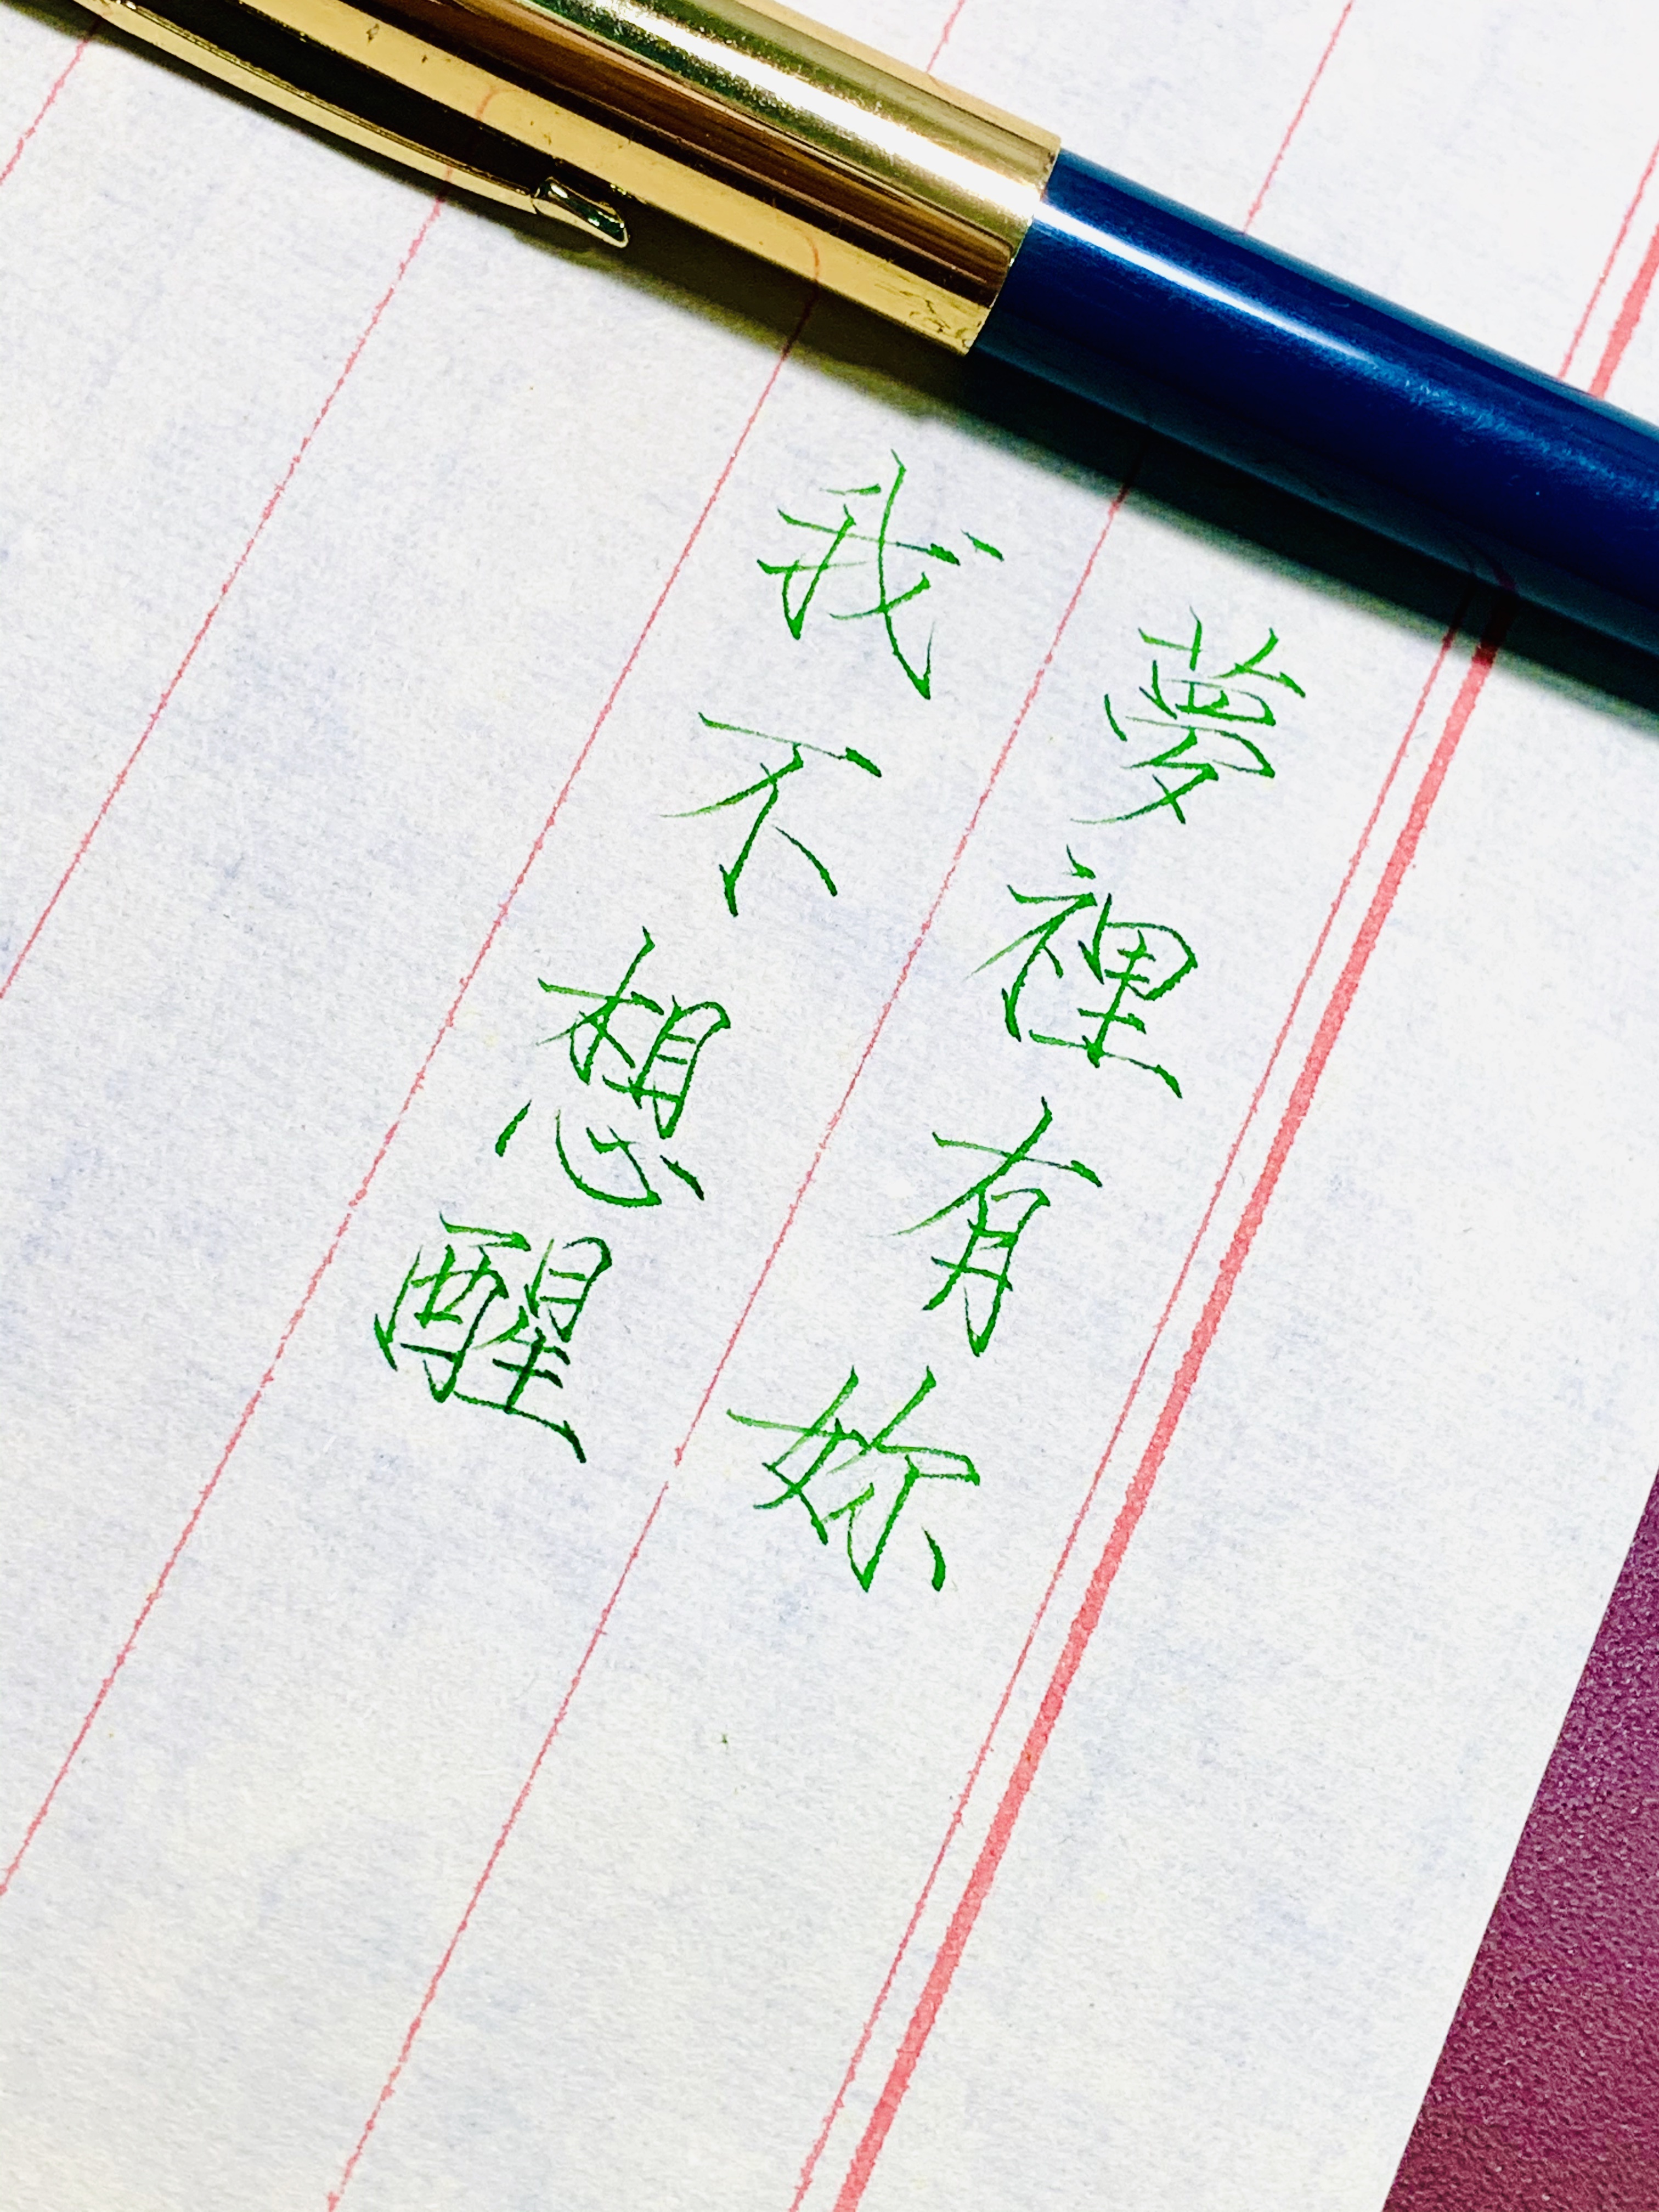 夢裡有妳
我不想醒